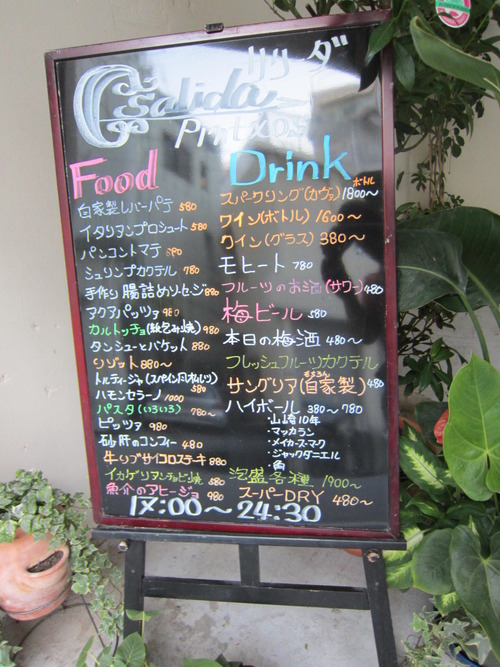 Salida
サリーダ
Pintxos
Food
自家製レバーパテ 580
イタリアンプロシュート 580
パンコントマテ
シュリンプカクテル 780
手作り腸詰めソーセージ 880
アクアパッツァ 980
カルトッチョ(紙包み焼) 980
タンシチューとバケット 880
リゾット 880〜
トルティージャ(スペイン風オムレツ) 580
ハモンセラーノ 1000
パスタ(いろいろ) 780〜
ピッツァ 980
砂肝のコンフィー 480
牛リブサイコロステーキ 880
イカゲソアンチョビ焼 580
魚介のアヒージョ 980
Drink
スパークリング(カヴァ) ボトル 1800〜
ワイン(ボトル) 1600〜
ワイン(グラス) 380〜
モヒート 780
フルーツのお酒(サワー) 480
梅ビール 580
本日の梅酒 480〜
フレッシュフルーツカクテル
サングリア(自家製) もちろん 480
ハイボール 380〜780
・山崎10年
・マッカラン
・メイカーズマーク
・ジャックダニエル
・角
泡盛各種 1900〜
スーパーDRY 480〜
17:00〜24:30